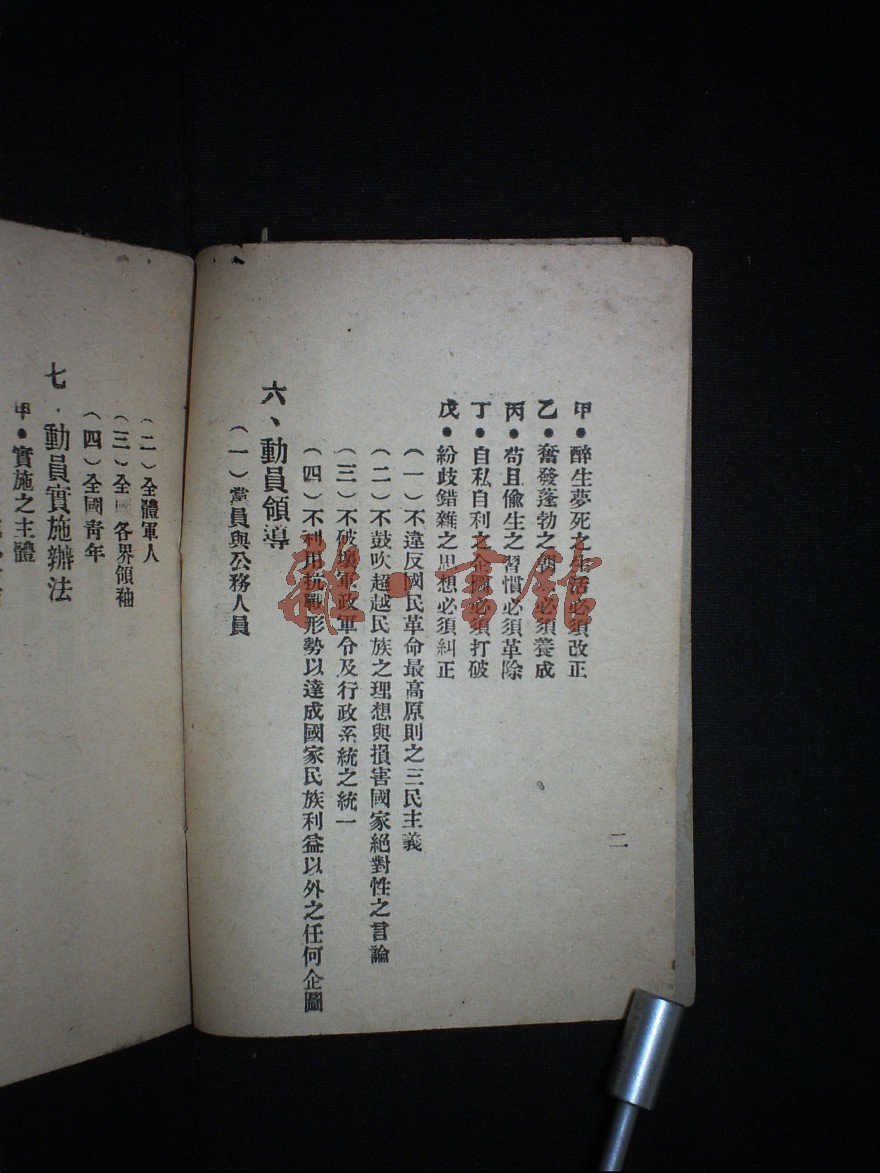 二
甲•醉生夢死之生活必須改正
乙•奮發蓬勃之朝 必須養成
丙•苟且偸生之習慣必須革除
丁•自私自利之企圖必須打破
戊•紛歧錯雜之思想必須糾正
（一）不違反國民革命最高原則之三民主義
（二）不鼓吹超越民族之理想與損害國家絕對性之言論
（三）不破壞軍政軍令及行政系統之統一
（四）不利用抗戰形勢以達成國家民族利益以外之任何企圖
六、動員領導
（一）黨員與公務人員
（二）全體軍人
（三）全國各界領袖
（四）全國靑年
七．動員實施辦法
甲•實施之主體
雜•書館